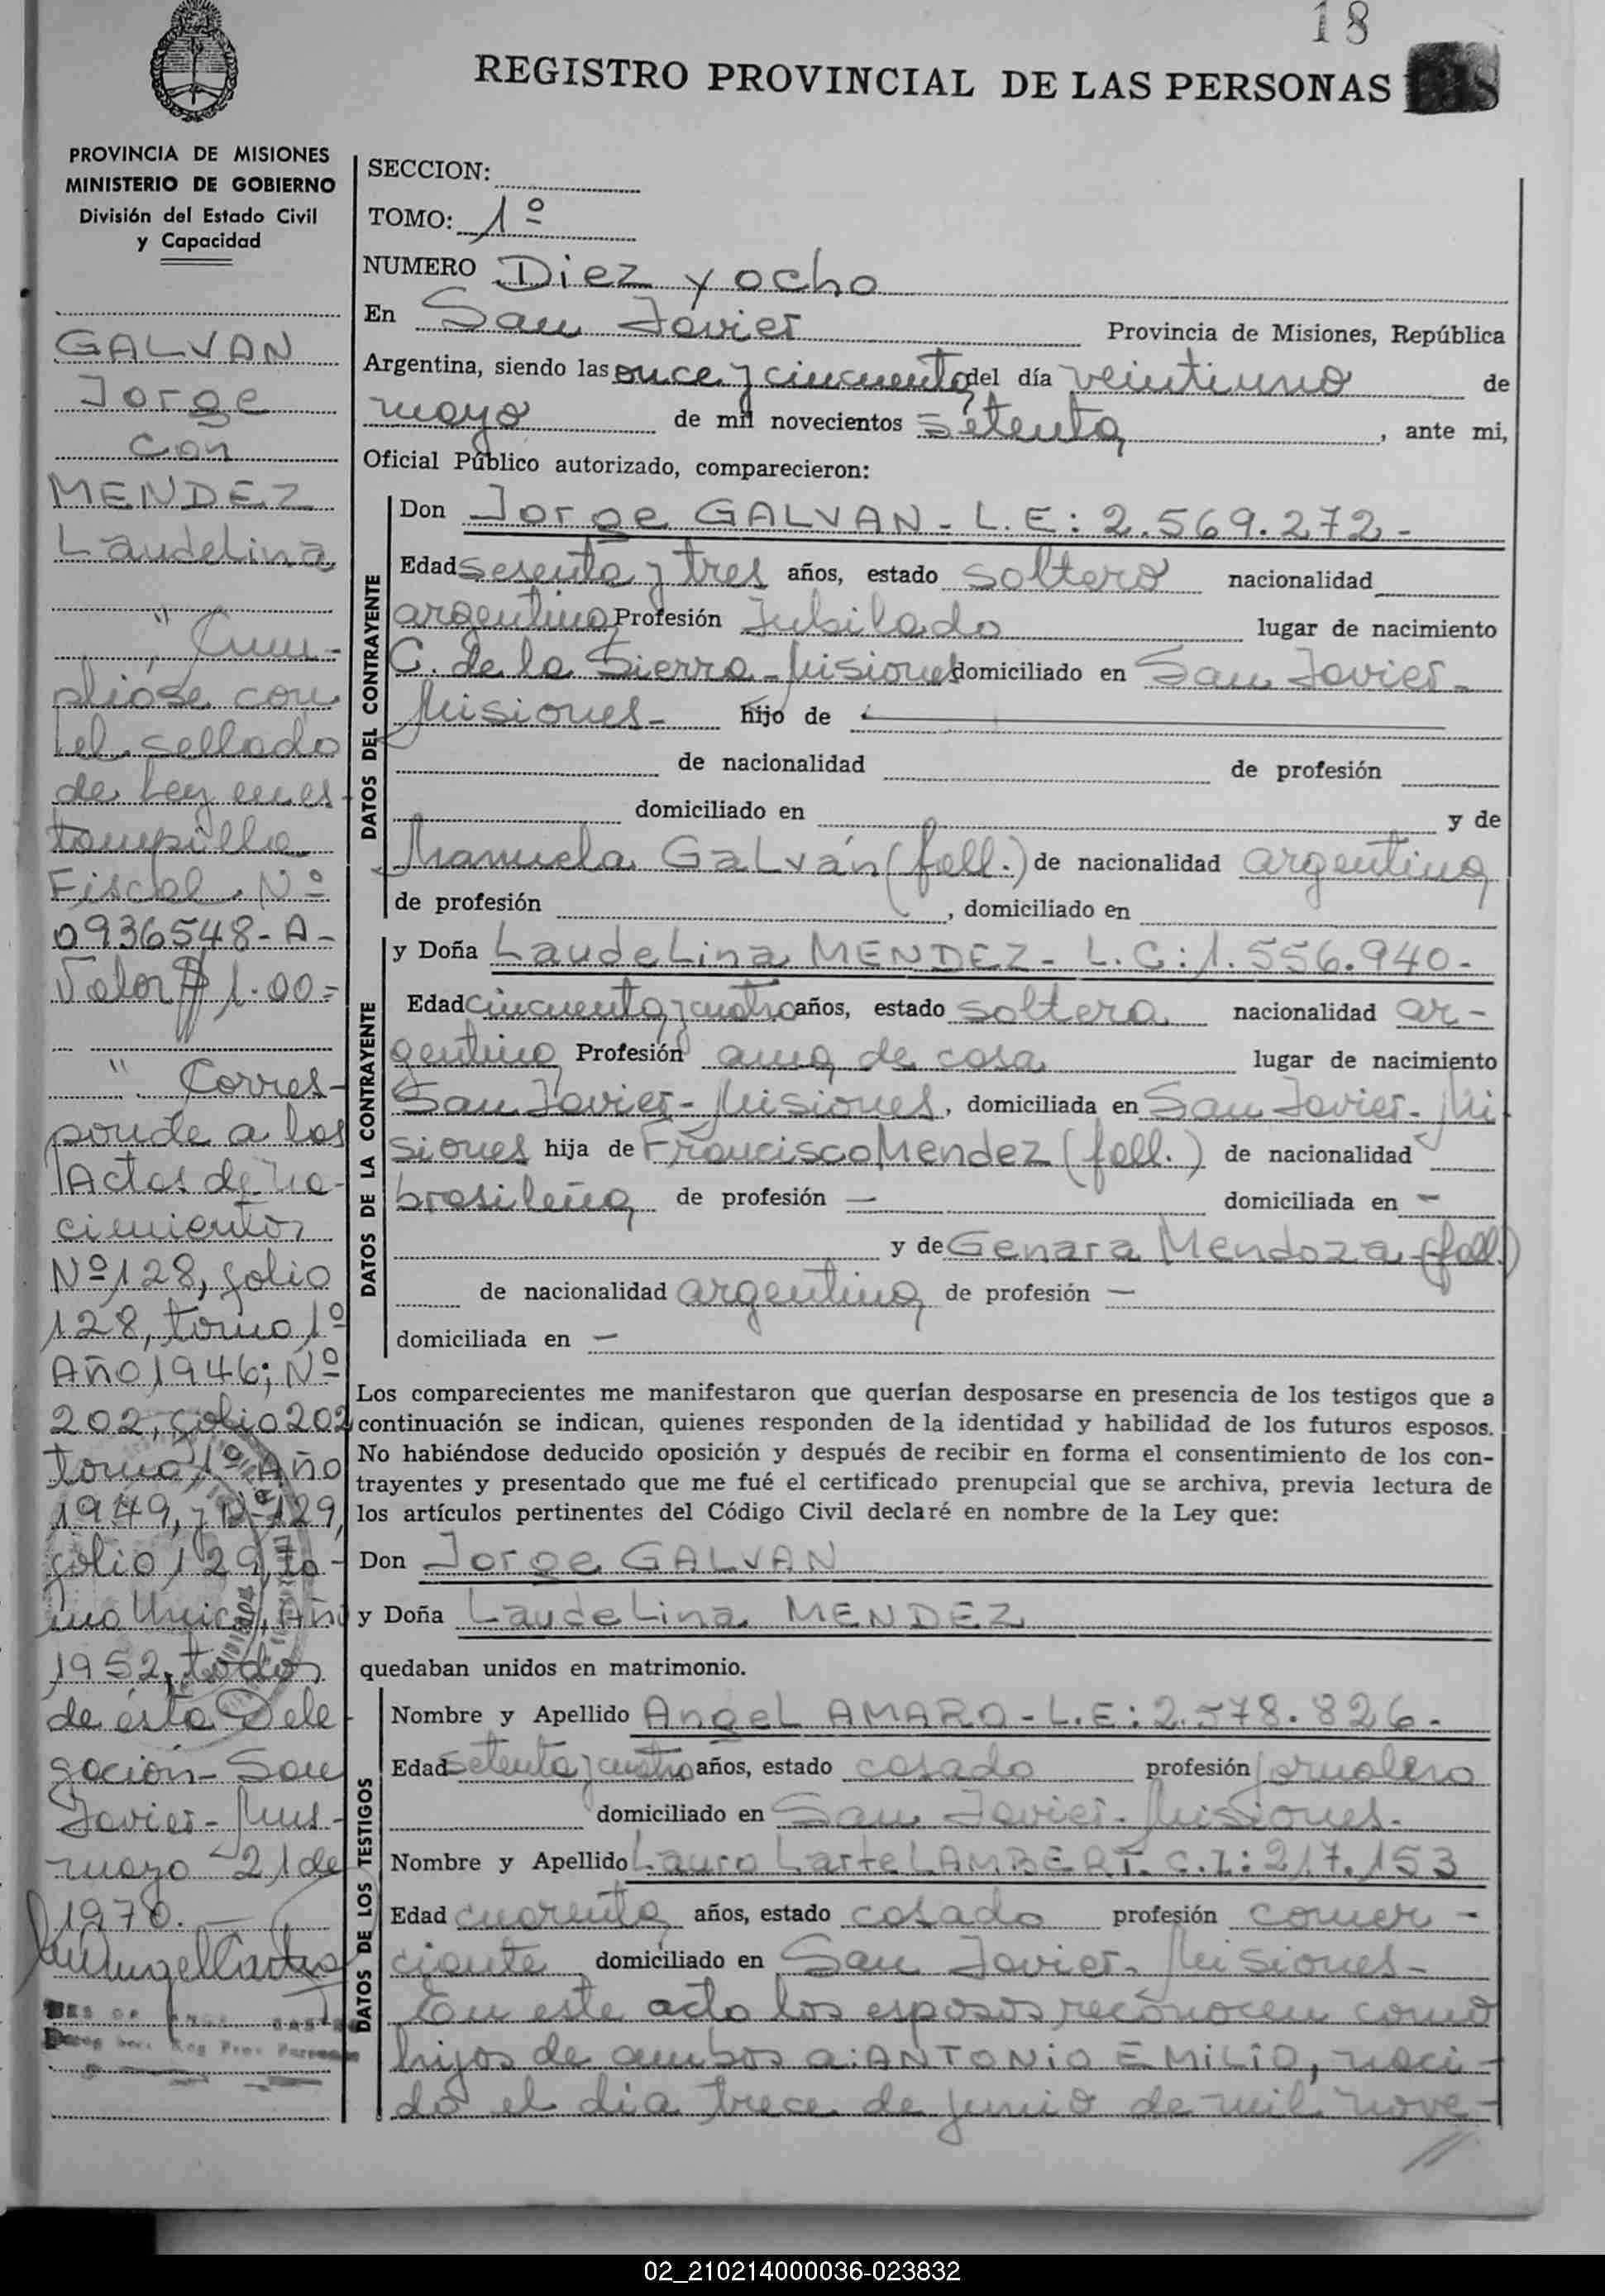 18
REGISTRO PROVINCIAL DE LAS PERSONAS
PROVINCIA DE MISIONES
MINISTERIO DE GOBIERNO
División del Estado Civil
y Capacidad
GALVAN
Jorge
con
MENDEZ
Laudelina
" Cum-
plióse con
el sellado
de Ley en es-
tampilla
Fiscal Nº
0936548-A-
Valor $ 1.00=
" Corres-
ponde a las
Actas de na-
cimiento,
Nº 128, folio
128, tomo 1º
Año 1946; Nº
202, folio 202
tomo 1º Año
1949, y Nº 129,
folio 129, to-
mo Unico, Año
1952, todos
de ésta Dele-
gación- San
Javier- Mns-
mayo 21 de
1970.-
SECCION:
TOMO: 1º
NUMERO Diez y ocho
En San Javier Provincia de Misiones, República
Argentina, siendo las once y cincuenta del día veintiuno de
mayo de mil novecientos setenta, ante mi,
Oficial Público autorizado, comparecieron:
DATOS DEL CONTRAYENTE
Don Jorge GALVAN - L.E: 2.569.272-
Edad sesenta y tres años, estado soltero nacionalidad
argentina Profesión Jubilado lugar de nacimiento
C. de la Sierra - Misiones domiciliado en San Javier-
Misiones- hijo de
de nacionalidad de profesión
domiciliado en y de
Manuela Galván (fall.) de nacionalidad argentina
de profesión , domiciliado en
DATOS DE LA CONTRAYENTE
y Doña Laudelina MENDEZ - L.C: 1.556.940-
Edad cincuenta y cuatro años, estado soltera nacionalidad ar-
gentina Profesión ama de casa lugar de nacimiento
San Javier- Misiones, domiciliada en San Javier- Mi
siones hija de Francisco Mendez (fall.) de nacionalidad
brasileña de profesión — domiciliada en —
y de Genara Mendoza (fall.)
de nacionalidad argentina de profesión —
domiciliada en —
Los comparecientes me manifestaron que querían desposarse en presencia de los testigos que a
continuación se indican, quienes responden de la identidad y habilidad de los futuros esposos.
No habiéndose deducido oposición y después de recibir en forma el consentimiento de los con-
trayentes y presentado que me fué el certificado prenupcial que se archiva, previa lectura de
los artículos pertinentes del Código Civil declaré en nombre de la Ley que:
Don Jorge GALVAN
y Doña Laudelina MENDEZ
quedaban unidos en matrimonio.
DATOS DE LOS TESTIGOS
Nombre y Apellido Angel AMARO - L.E: 2.578.826-
Edad setenta y cuatro años, estado casado profesión jornalero
domiciliado en San Javier- Misiones.
Nombre y Apellido Lauro LAMBERT. C.I: 217.153
Edad cuarenta años, estado casado profesión comer-
ciante domiciliado en San Javier- Misiones-
En este acto los esposos reconocen como
hijos de ambos a: ANTONIO EMILIO, naci-
do el día trece de junio de mil nove-
02_210214000036-023832